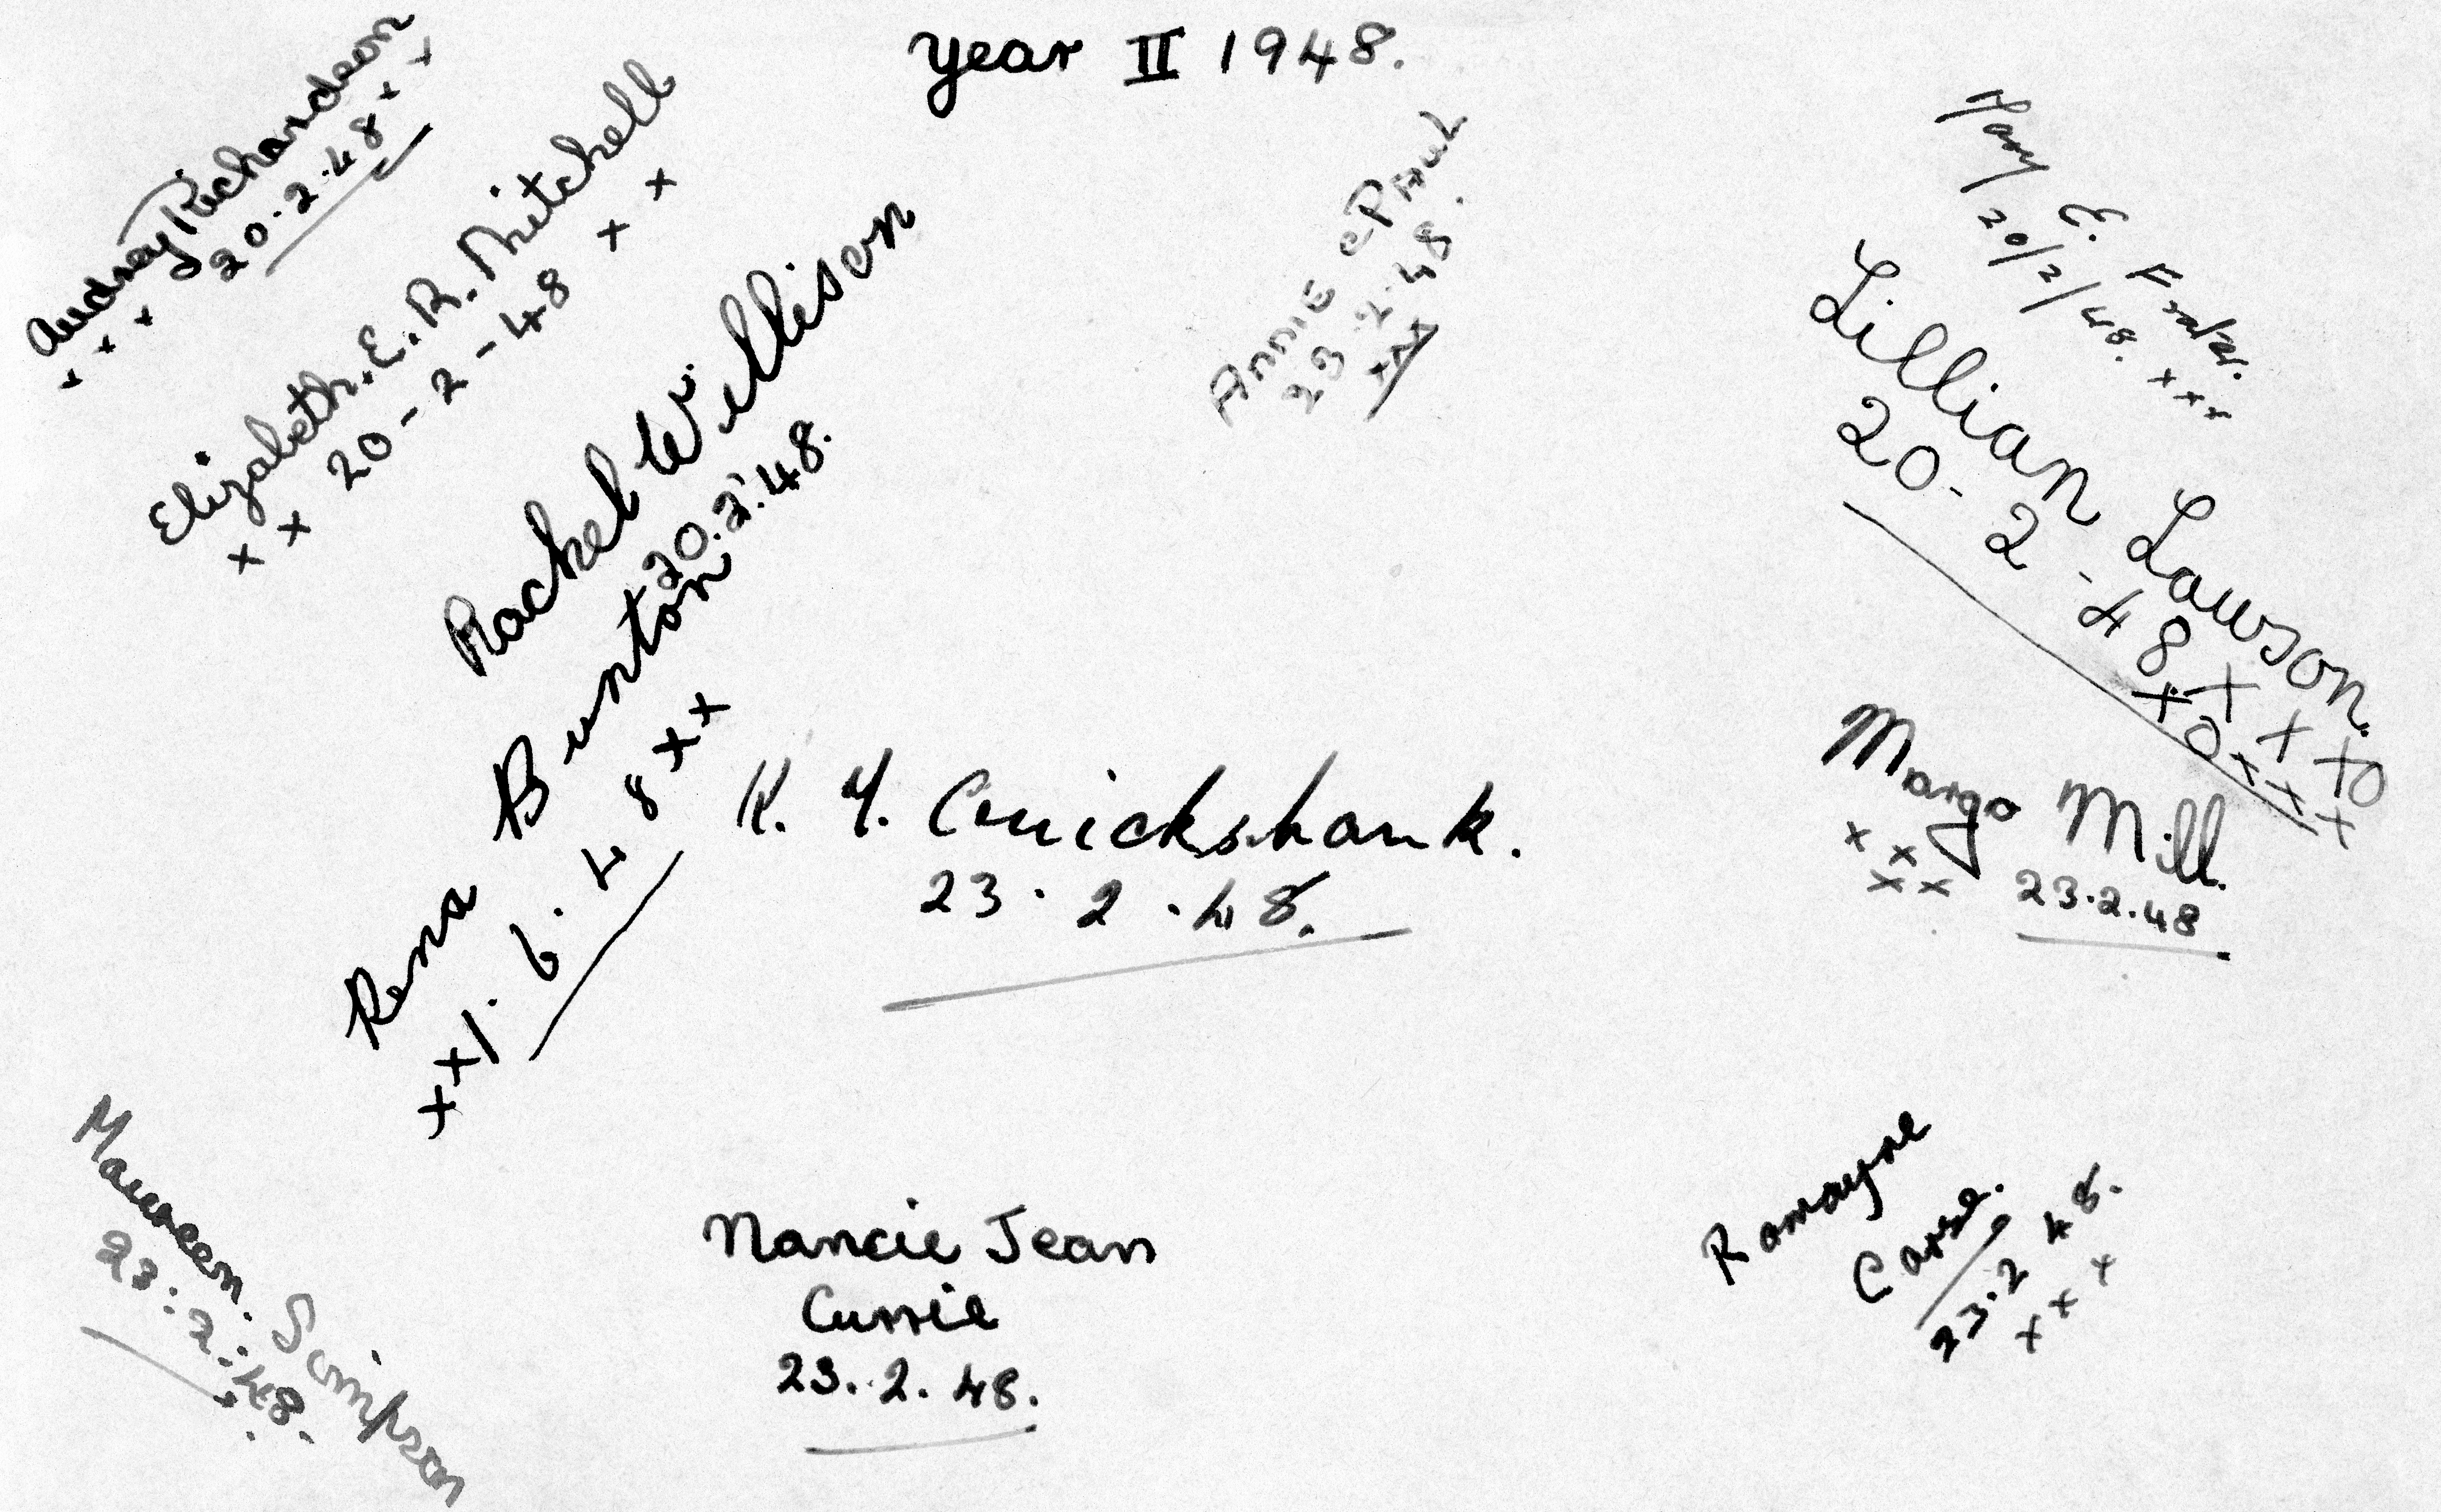 Year II 1948.
Audrey Richardson
x x x 20.2.48 x x x
Elizabeth.E.R.Mitchell
x x 20-2-48 x x
Rachel W. Willison
20.2.48.
Rena Bunton
xx1.6.48xx
Annie Paul
23.2.48.
xxx
Mary E. Fraser.
20/2/48. xxx
Lillian Lawson.
20-2-48 X X X O
X O X X X
Margo Mill.
x x x x 23.2.48
Cruickshank.
23.2.48.
Maureen. Simpson
23:2:48.
Nancie Jean
Currie
23.2.48.
Romayne
Carse.
23.2 48.
x x x